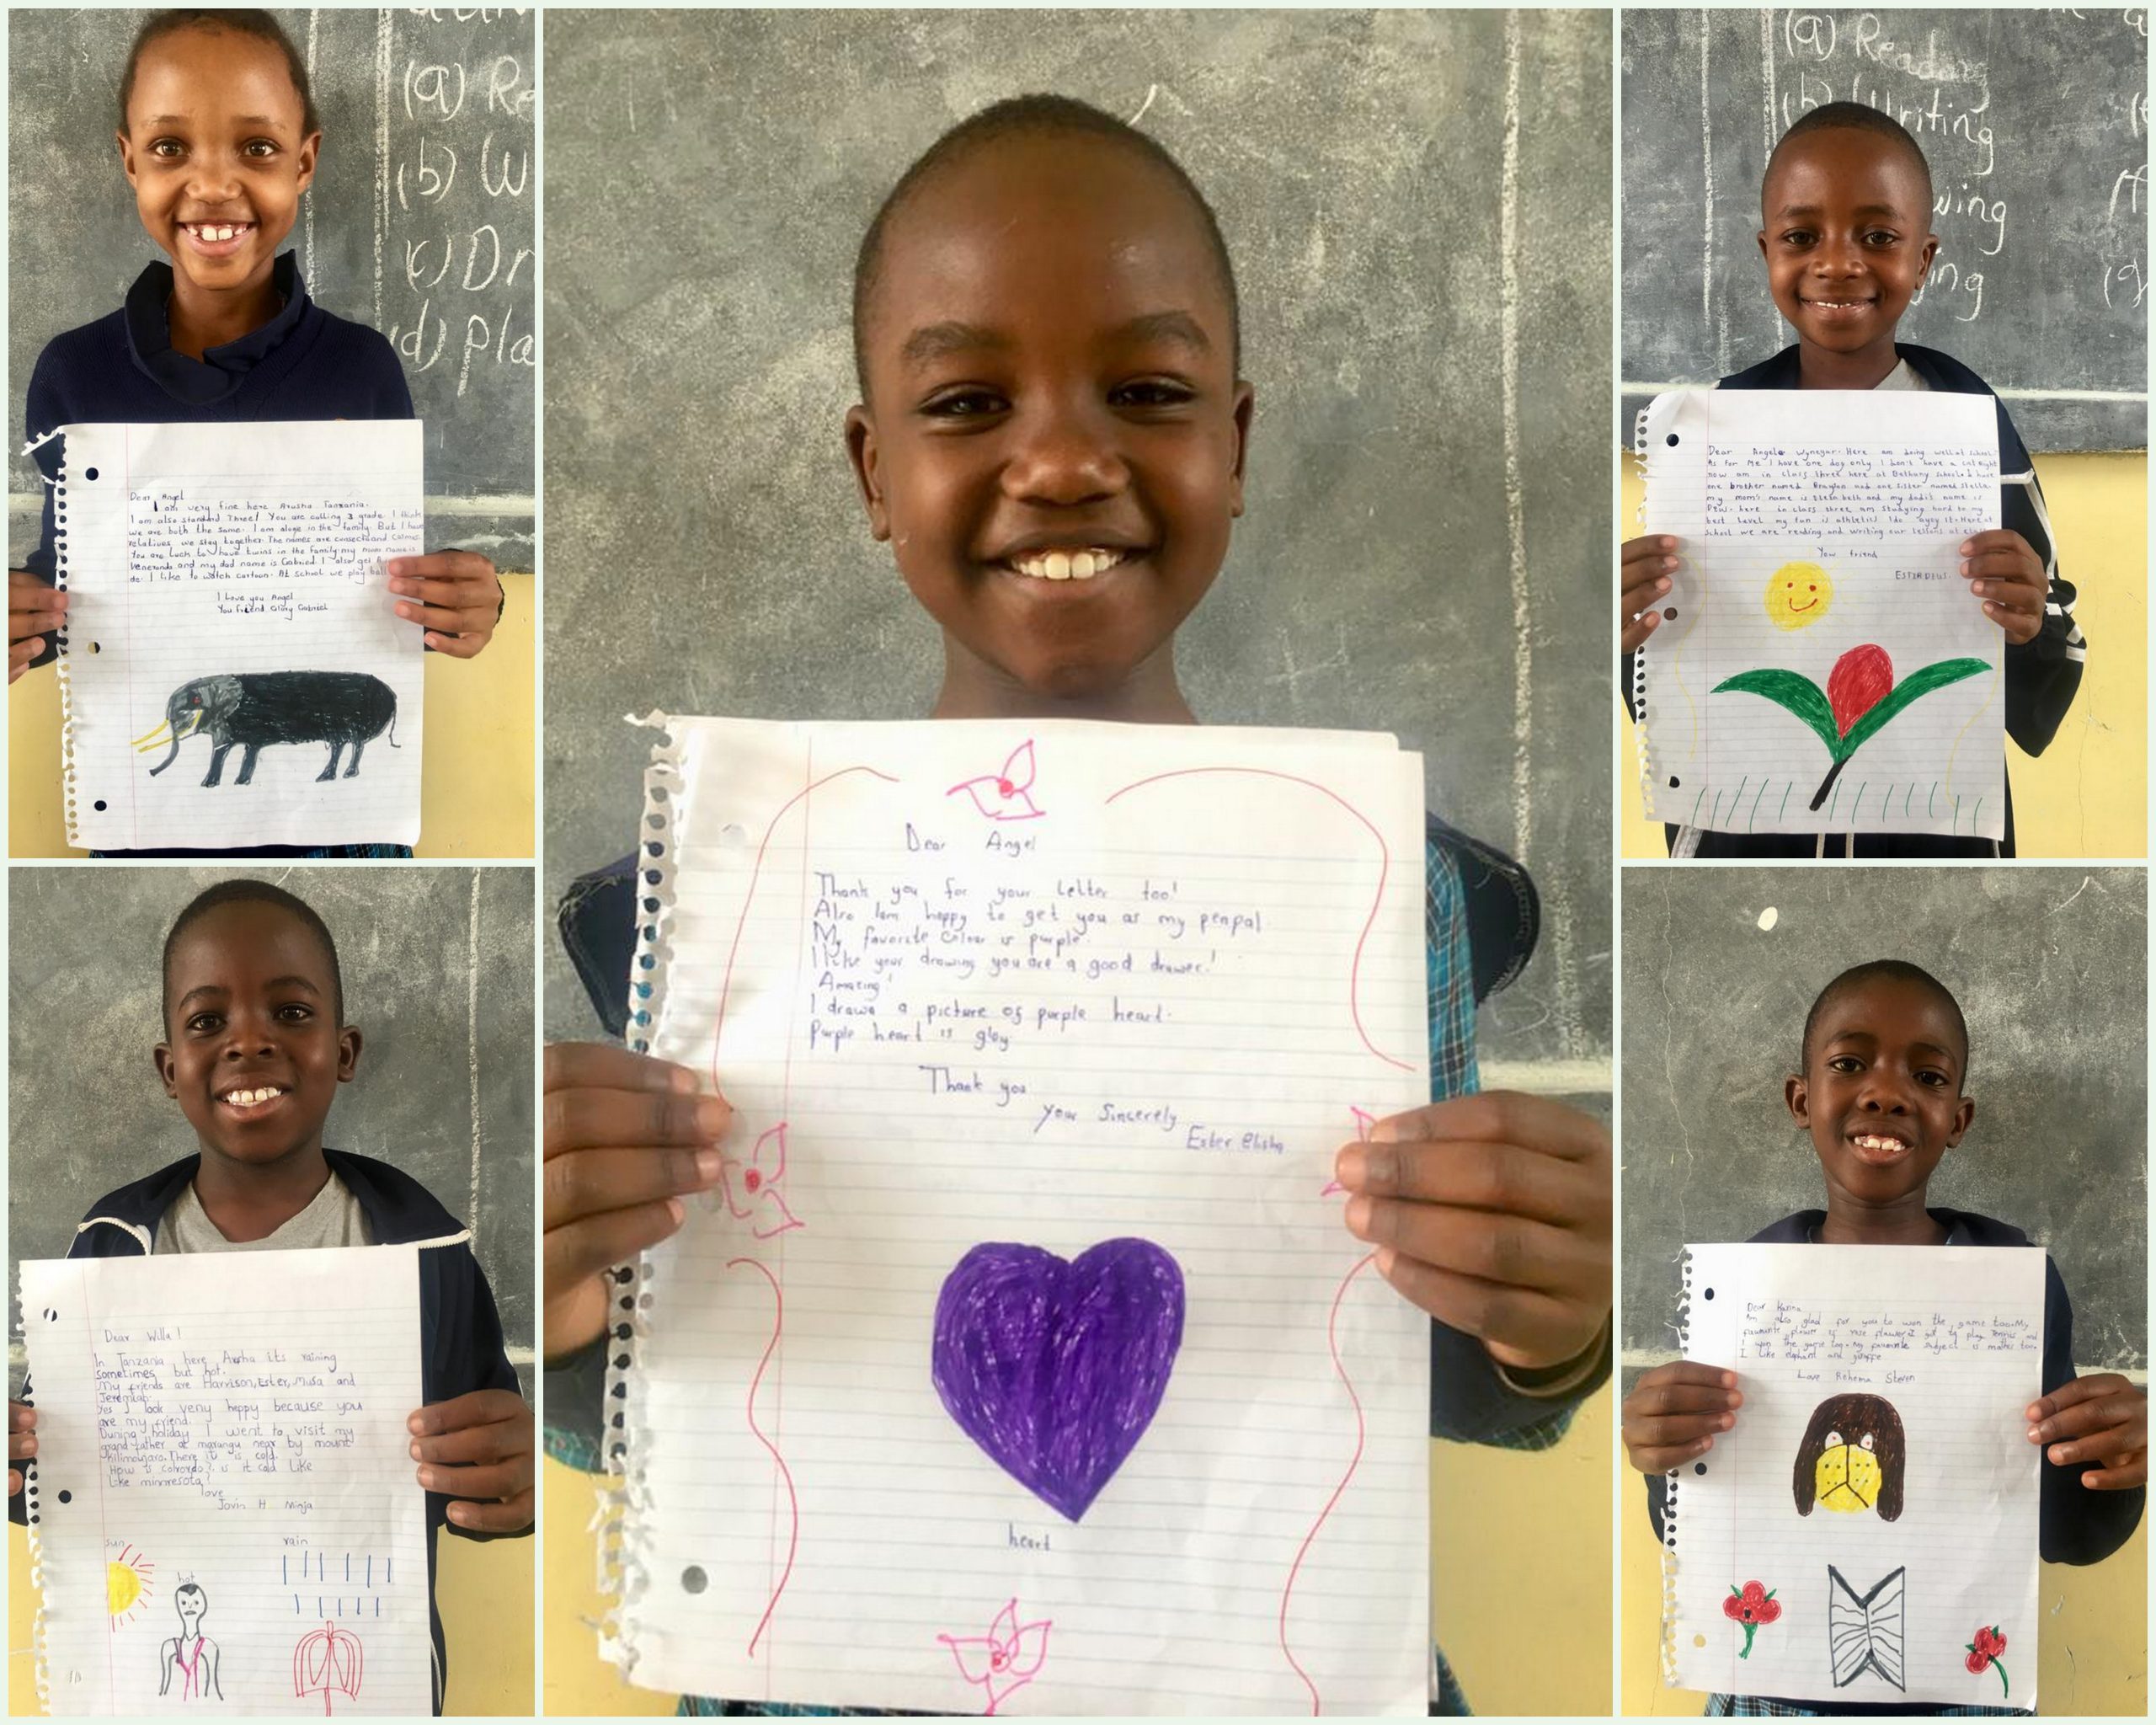 (a) Re
(b) W
(c) Dr
(d) Pla
Dear Angel
I am very fine here Arusha Tanzania.
I am also standard Three! You are calling 3 grade. I think
we are both the same. I am alone in the family. But I have
relatives we stay together. The names are and
You are Luck to have twins in the family. my mom name is
Veneranda and my dad name is Gabriel. I also get
de. I like to watch cartoon. At school we play ball
I Love you Angel
You friend Glory Gabriel
Dear Angel
Thank you for your Letter too!
Also Iam happy to get you as my penpal
My favorite colour is purple.
I like your drawing you are a good drawer!
Amazing!
I drawa a picture of purple heart.
Purple heart is gloy
Thank you
Your Sincerely
Ester Elisha
heart
(a) Reading
(b) Writing
wing
ying
Dear Angela Wynegar. Here am doing well at school.
As for Me I have one dog only I don't have a cat Right
now am in class three here at Bethany school. I have
one brother named Brayton and one sister named Stella
my mom's name is and my dad's name is
Deus. here in class three am studying hard to my
best level my fun is athletis! Ido it. Here at
School we are reading and writing our Lessons at class
You friend
ESTER DEUS.
Dear Willa!
In Tanzania here Arusha its raining
sometimes but hot.
My friends are Harrison, Ester, Musa and
Jeremiah.
Yes I look veny happy because you
are my friend.
During holiday I went to visit my
grand father at marangu near by mount
kilimonjaro. There it is cold.
How is colorado? is it cold Like
Like minnresota?
love
Jovin H Minja
sun
rain
hot
Dear Hanna
Am also glad for you to won the game too. My
favourite flower is rose flower. I got to play Tennis and
won the game too. My favourite subject is maths too.
I Like elephant and giraffe
Love Rehema Steven